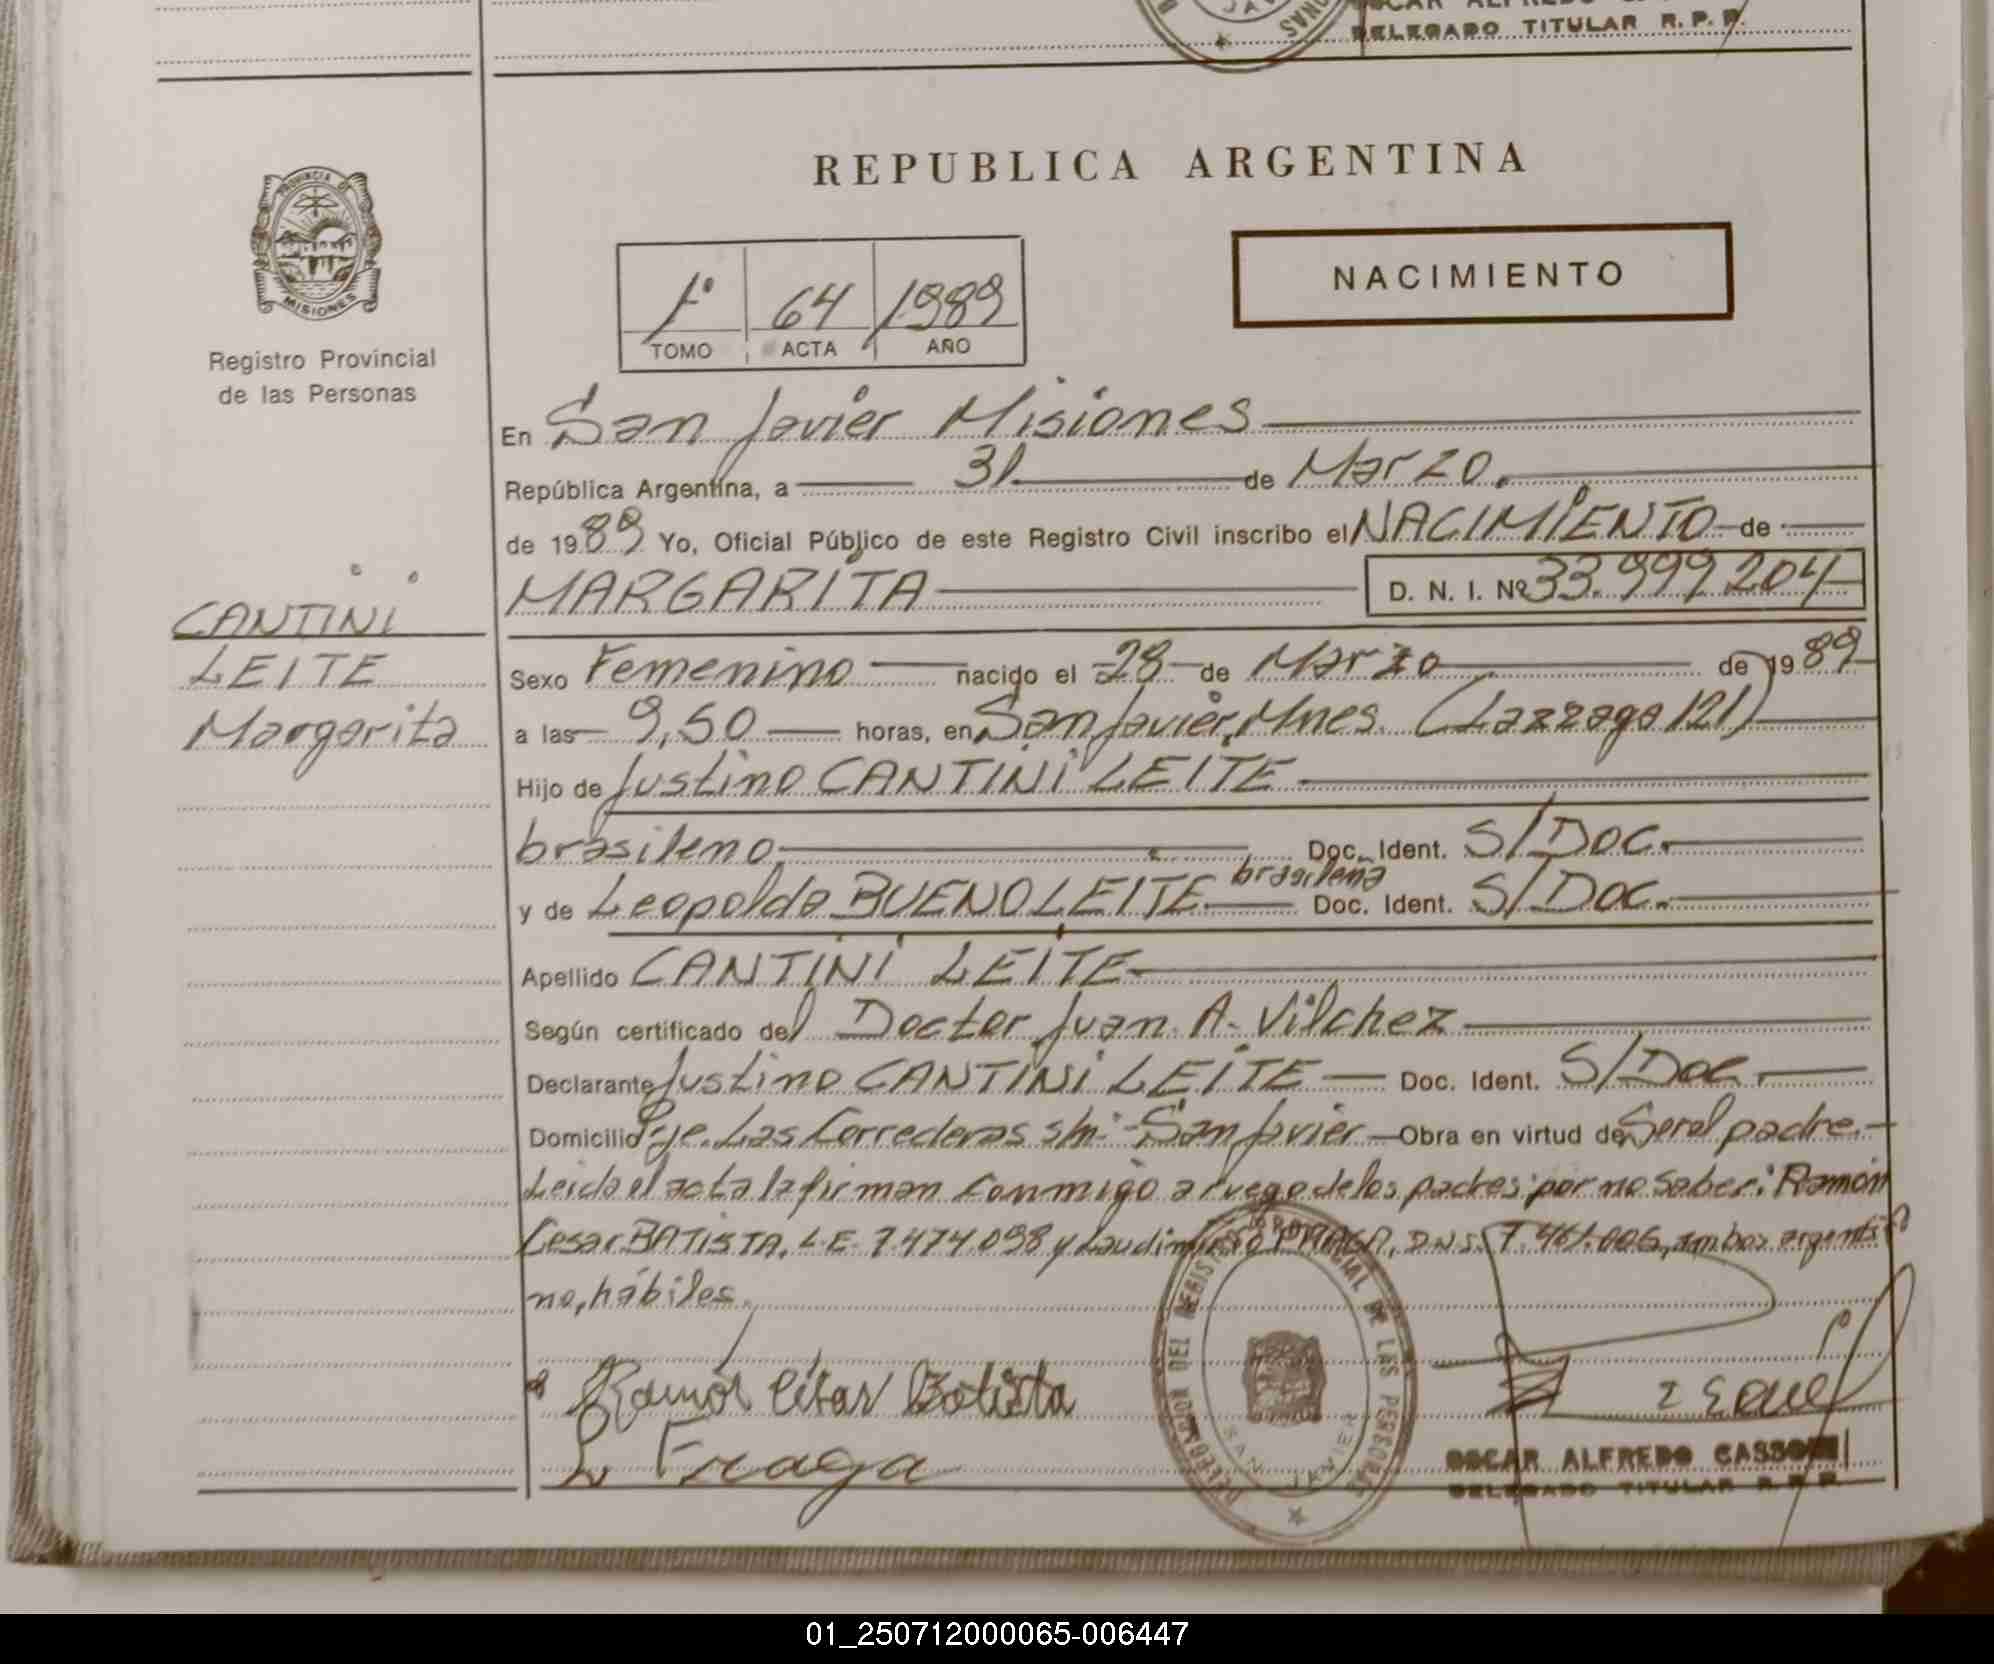 OSCAR ALFREDO
DELEGADO TITULAR R.P.P.
PROVINCIA DE
MISIONES
Registro Provincial
de las Personas
REPUBLICA ARGENTINA
NACIMIENTO
1º 64 1989
TOMO ACTA AÑO
En San Javier Misiones
República Argentina, a 31 de Marzo.
de 1989 Yo, Oficial Público de este Registro Civil inscribo el NACIMIENTO de
MARGARITA D. N. I. Nº 33.999.204
CANTINI
LEITE
Margarita
Sexo Femenino nacido el 28 de Marzo de 1989
a las 9,50 horas, en San Javier, Mnes. (Lazzaga 121)
Hijo de Justino CANTINI LEITE
brasileno. Doc. Ident. S/Doc.
brasilena
y de Leopolda BUENO LEITE Doc. Ident. S/Doc.
Apellido CANTINI LEITE
Según certificado del Doctor Juan A. Vilchez
Declarante Justino CANTINI LEITE Doc. Ident. S/Doc.
Domicilio Pje. Las Correderas s/n: San Javier Obra en virtud de Ser el padre.
Leida el acta la firman conmigo a ruego de los padres por no saber: Ramón
Cesar BATISTA, L.E. 7.474.098 y Laudimiro FRAGA, D.N.I. ambos argenti
no, hábiles.
Ramón César Batista
L Fraga
DELEGACION DEL REGISTRO PROVINCIAL DE LAS PERSONAS
SAN JAVIER
OSCAR ALFREDO CASSONI
DELEGADO TITULAR R.P.P.
01_250712000065-006447